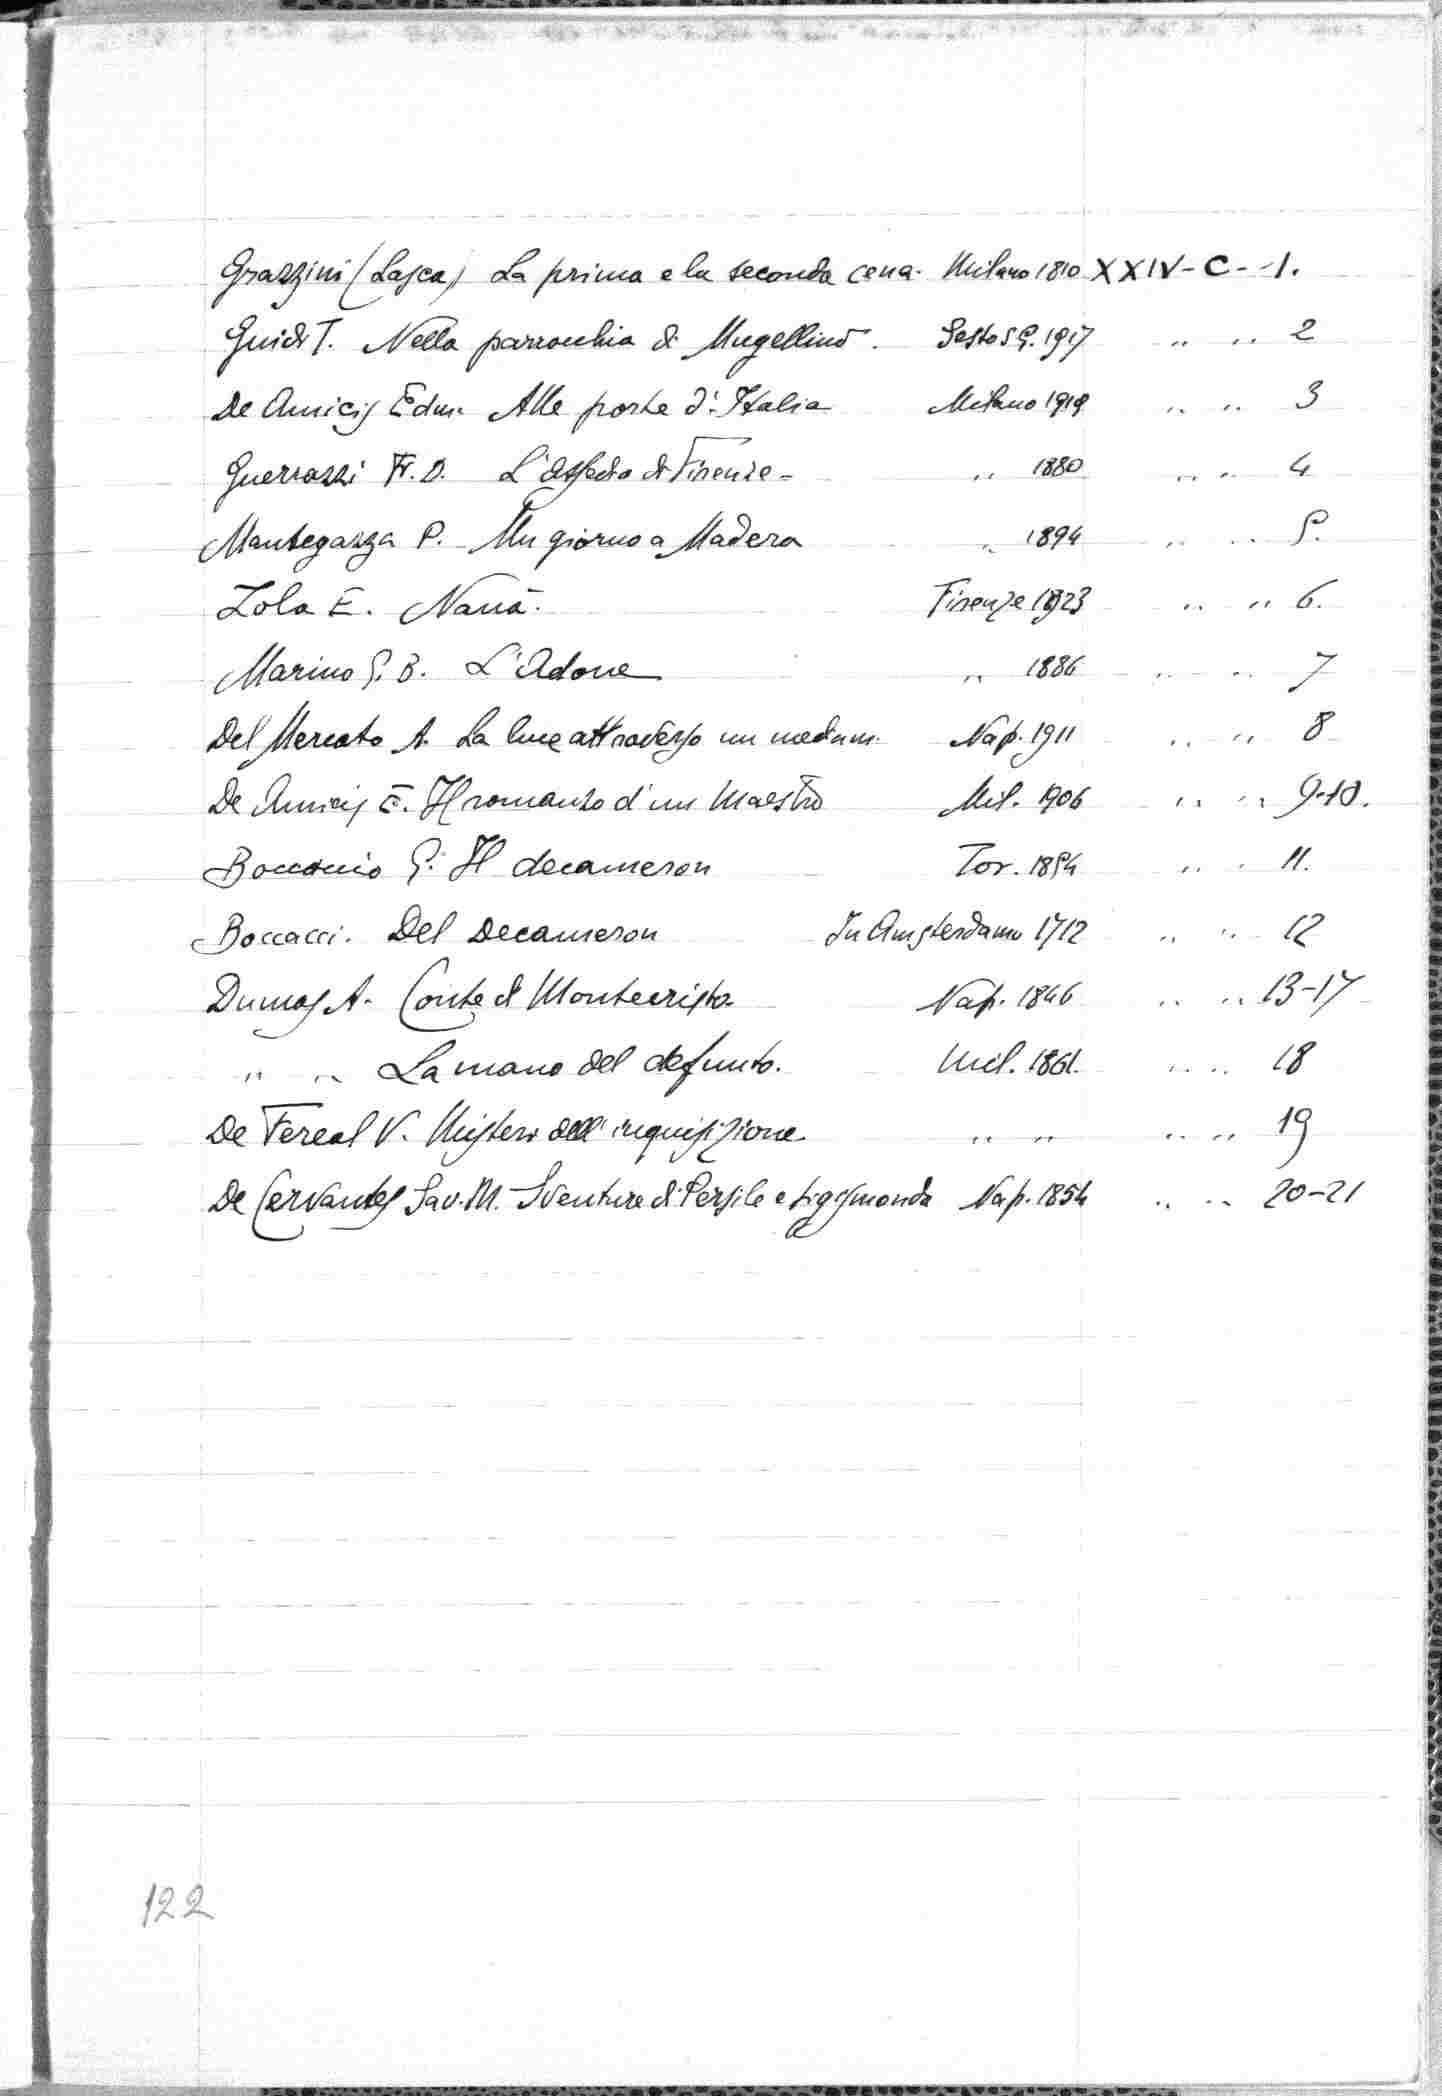 Grazzini (Lasca) La prima e la seconda cena. Milano 1810 XXIV - C - 1.
Guidi T. Nella parrocchia di Mugellino. Sesto S G. 1917 " " 2
De Amicis Edm. Alle porte d'Italia Milano 1919 " " 3
Guerrazzi Fr. D. L'assedio di Firenze - " 1880 " " 4
Mantegazza P. Un giorno a Madera " 1894 " " 5.
Zola E. Nanà. Firenze 1923 " " 6.
Marino G. B. L'Adone " 1886 " " 7
Del Mercato A. La luce attraverso un medium. Nap. 1911 " " 8
De Amicis E. Il romanzo d'un Maestro Mil. 1906 " " 9-10.
Boccaccio G. Il decameron Tor. 1854 " " 11.
Boccacci. Del Decameron In Amsterdamo 1712 " " 12
Dumas A. Conte di Montecristo. Nap. 1846 " " 13-17
" " La mano del defunto. Mil. 1861. " " 18
De Fereal V. Misteri dell'inquisizione. " " " " 19
De Cervantes Sav. M. Sventure di Persile e Sigismonda Nap. 1854 " " 20-21
122